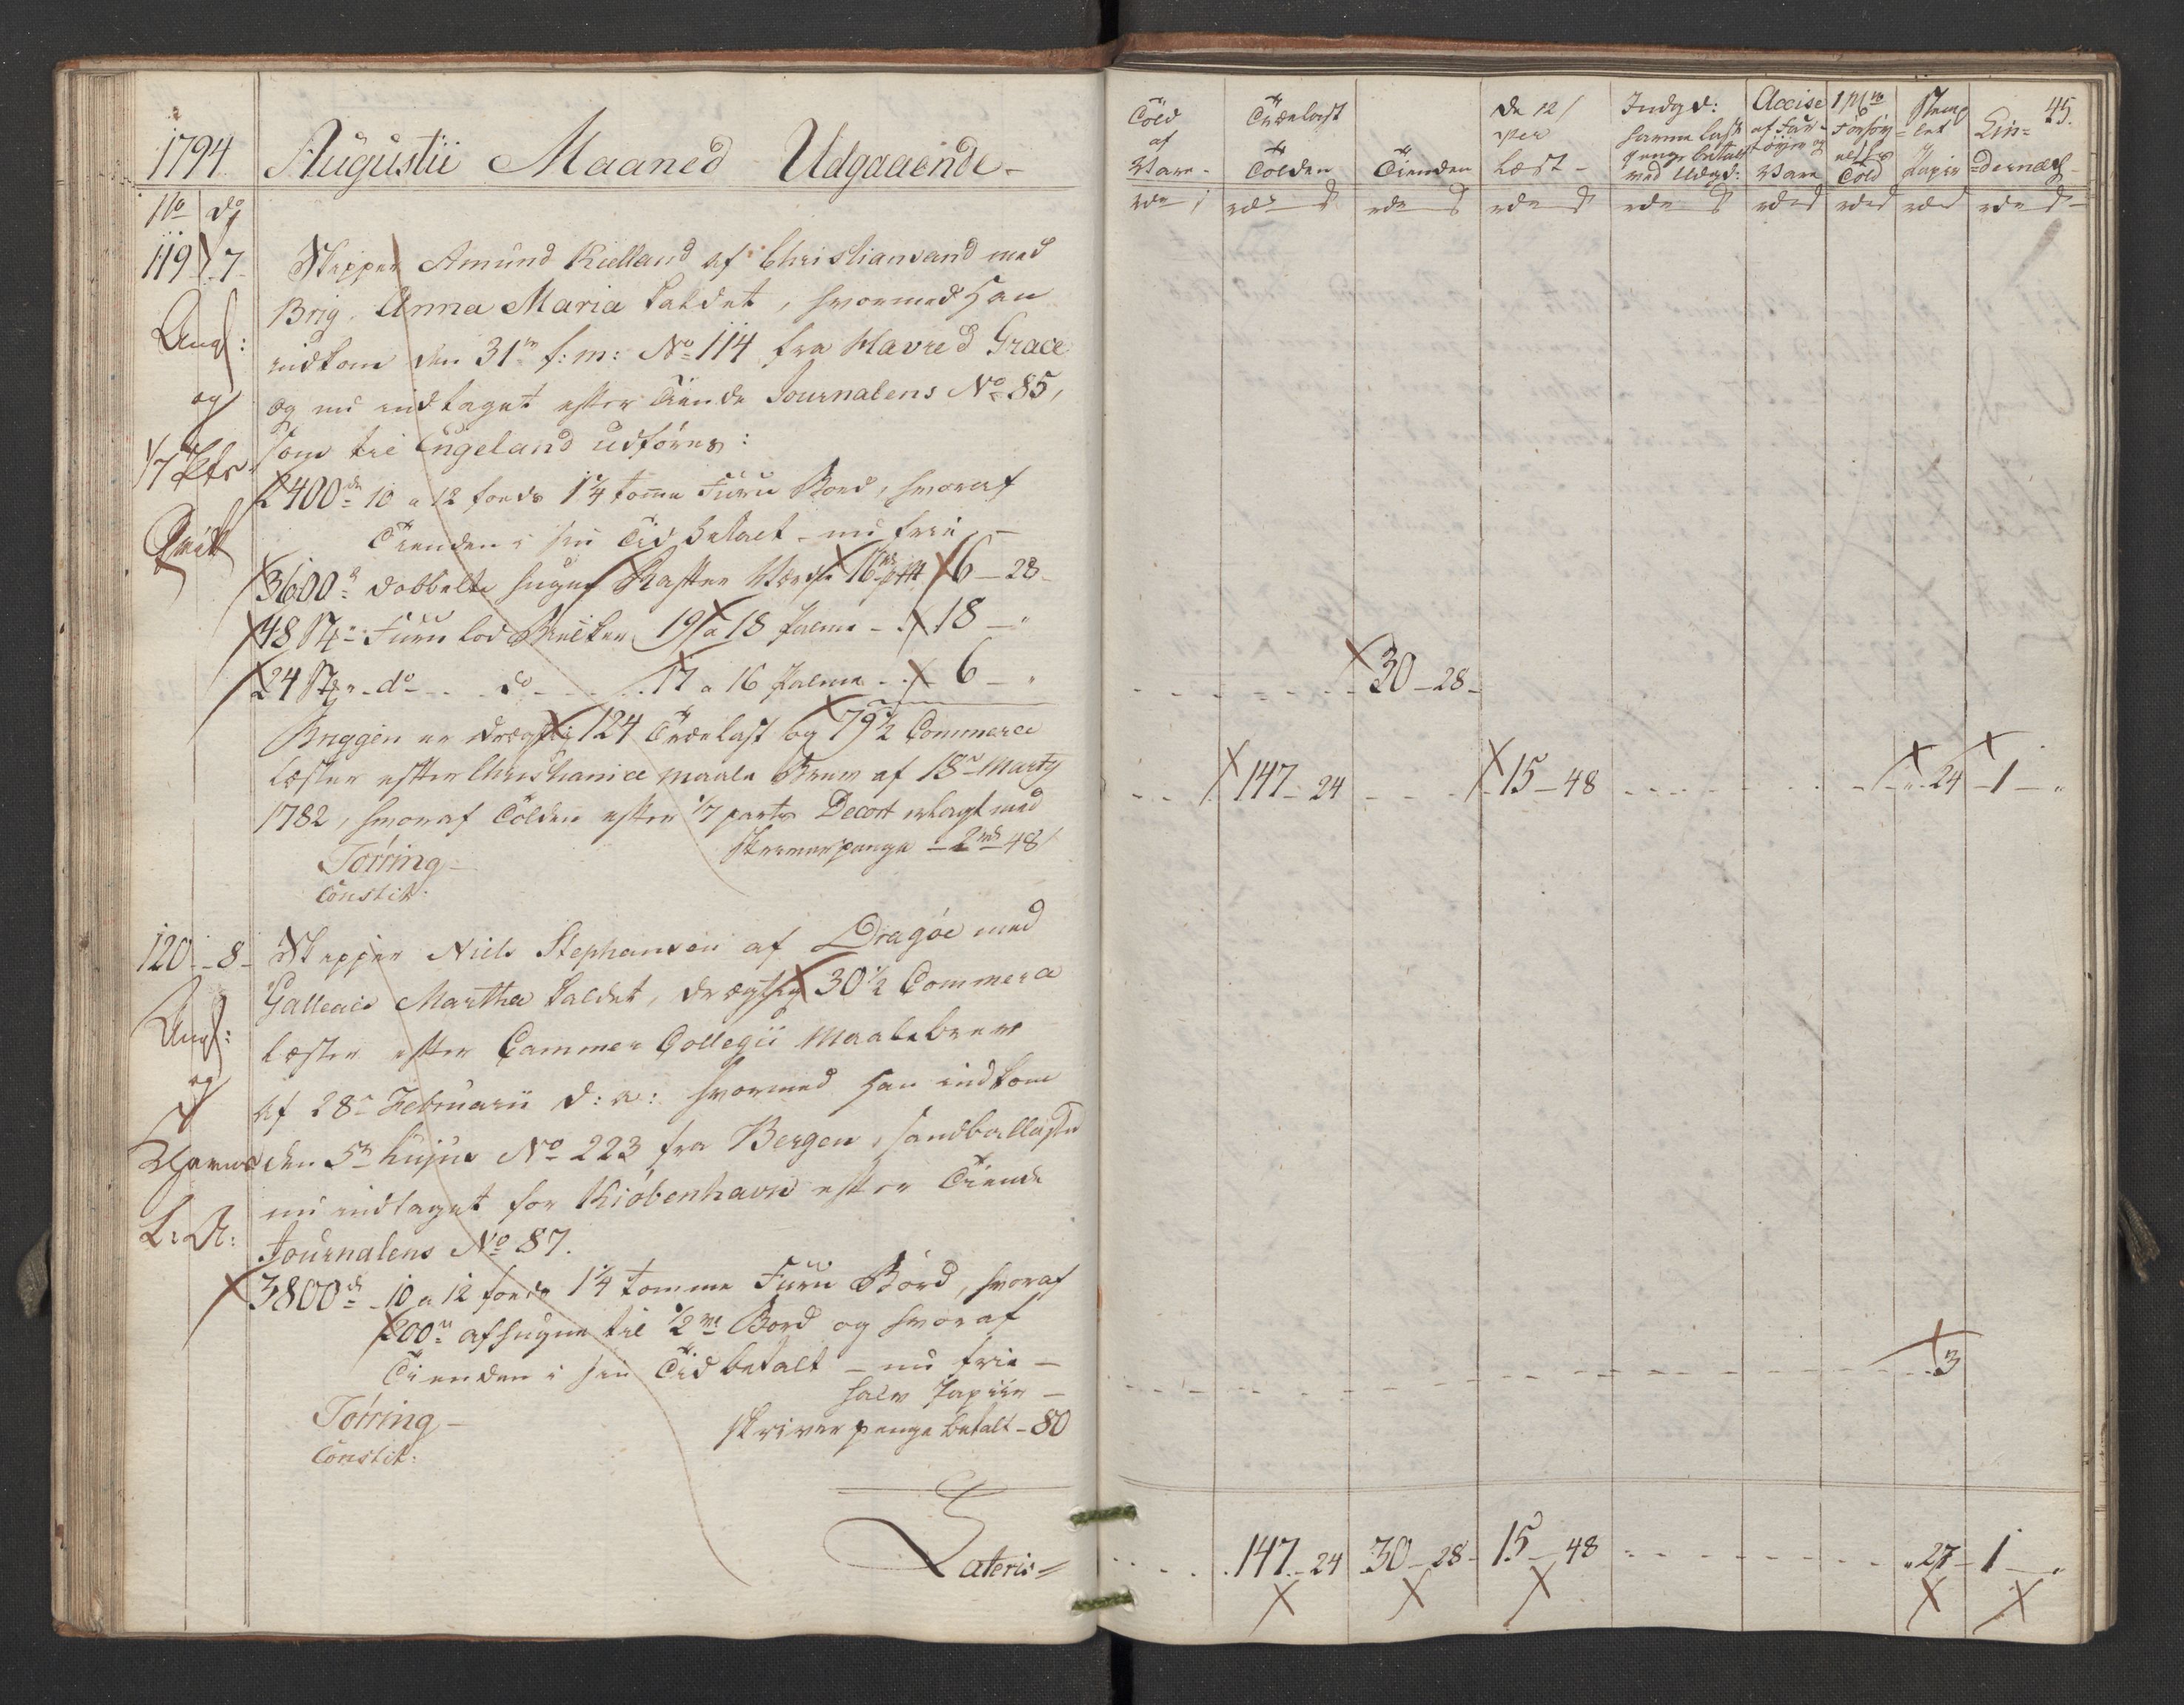 1794. Augustii Maaned Udgaaende-
No dg
119 7. Skipper Amund Kielland af Christiansand med
Brig. Anna Maria kaldet, hvormed han
Ang: indkom den 31te f: m: No 114 fra Havre d Grace
og og nu indtaget efter Tiende Journalens No 85,
1/7 Pts som til Engeland udføres:
2400de 10 a 12 fods 1 1/4 tomme Furu Bord, hvoraf
Qvit Tienden i sin Tid betalt - nu frie -
3600de dobbelte hugne 16 6 - 28 -
48 St. Furu lod Bielker 19 a 18 Palme - 18 - "
24 St. do do 17 a 16 Palme - 6 - "
Briggen er drægtig 124 Trælast og 79 1/2 Commerce
læster efter Christianiæ maale Brev af 18de Marty
1782, hvoraf Tolden efter 1/7 parts Decort erlagt med
Tørring - Skriverpenge - 2rd 48 s
Constit:
120 - 8 - Skipper Niels Stephansen af Dragøe med
Galleas Martha kaldet, drægtig 30 1/2 Commerce
Ang: læster efter Cammer Collegii Maalebrev
og af 28de Februarii d: a: hvormed han indkom
den 5te hujus No 223 fra Bergen, sandballastet
nu indtaget for Kiøbenhavn efter Tiende
Journalens No 87.
3800de 10 a 12 fods 1 1/4 tomme Furu Bord, hvoraf
200de afhugne til 1/2 Bord og hvoraf
Tienden i sin Tid betalt - nu frie -
halv Papiir -
Tørring - skriver penge betalt - 80
Constit:
Lateris
45.
Told af Vare - Trælast Tolden Tienden de 12 s per Læst - Indgd: samme last penge betalt ved Udgd: Accise af Far-tøyer og Vare 1 pCto Told Stemp-let Papiir
rd s rd s rd s rd s rd s rd s rd s rd s rd s
30 - 28 -
147 - 24 15 - 48 " 24 - 1 - "
3
147 - 24 30 - 28 - 15 - 48 " 27 - 1 - "